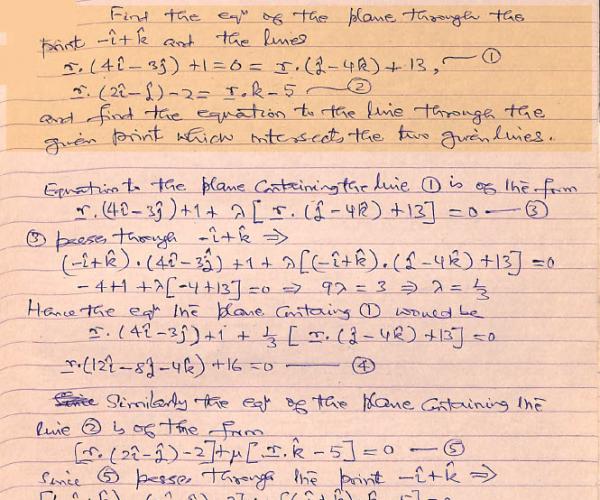 Find the eqn of the plane through the
point -î+k̂ and the lines
r.(4î-3ĵ)+1=0=r.(ĵ-4k̂)+13, —①
r.(2î-ĵ)-2= r.k-5 —②
and find the equation to the line through the
given point which intersects the two given lines.
Equation to the plane containing the line ① is of the form
r.(4î-3ĵ)+1+λ[r.(ĵ-4k̂)+13]=0 —③
③ passes through -î+k̂ ⇒
(-î+k̂).(4î-3ĵ)+1+λ[(-î+k̂).(ĵ-4k̂)+13]=0
-4+1+λ[-4+13]=0 ⇒ 9λ=3 ⇒ λ=1/3
Hence the eqn the plane containg ① would be
r.(4î-3ĵ)+1+1/3[r.(ĵ-4k̂)+13]=0
r.(12î-8ĵ-4k̂)+16=0 —④
Similarly the eqn of the plane containing the
line ② is of the form
[r.(2î-ĵ)-2]+μ[r.k̂-5]=0 —⑤
Since ⑤ passes through the point -î+k̂ ⇒